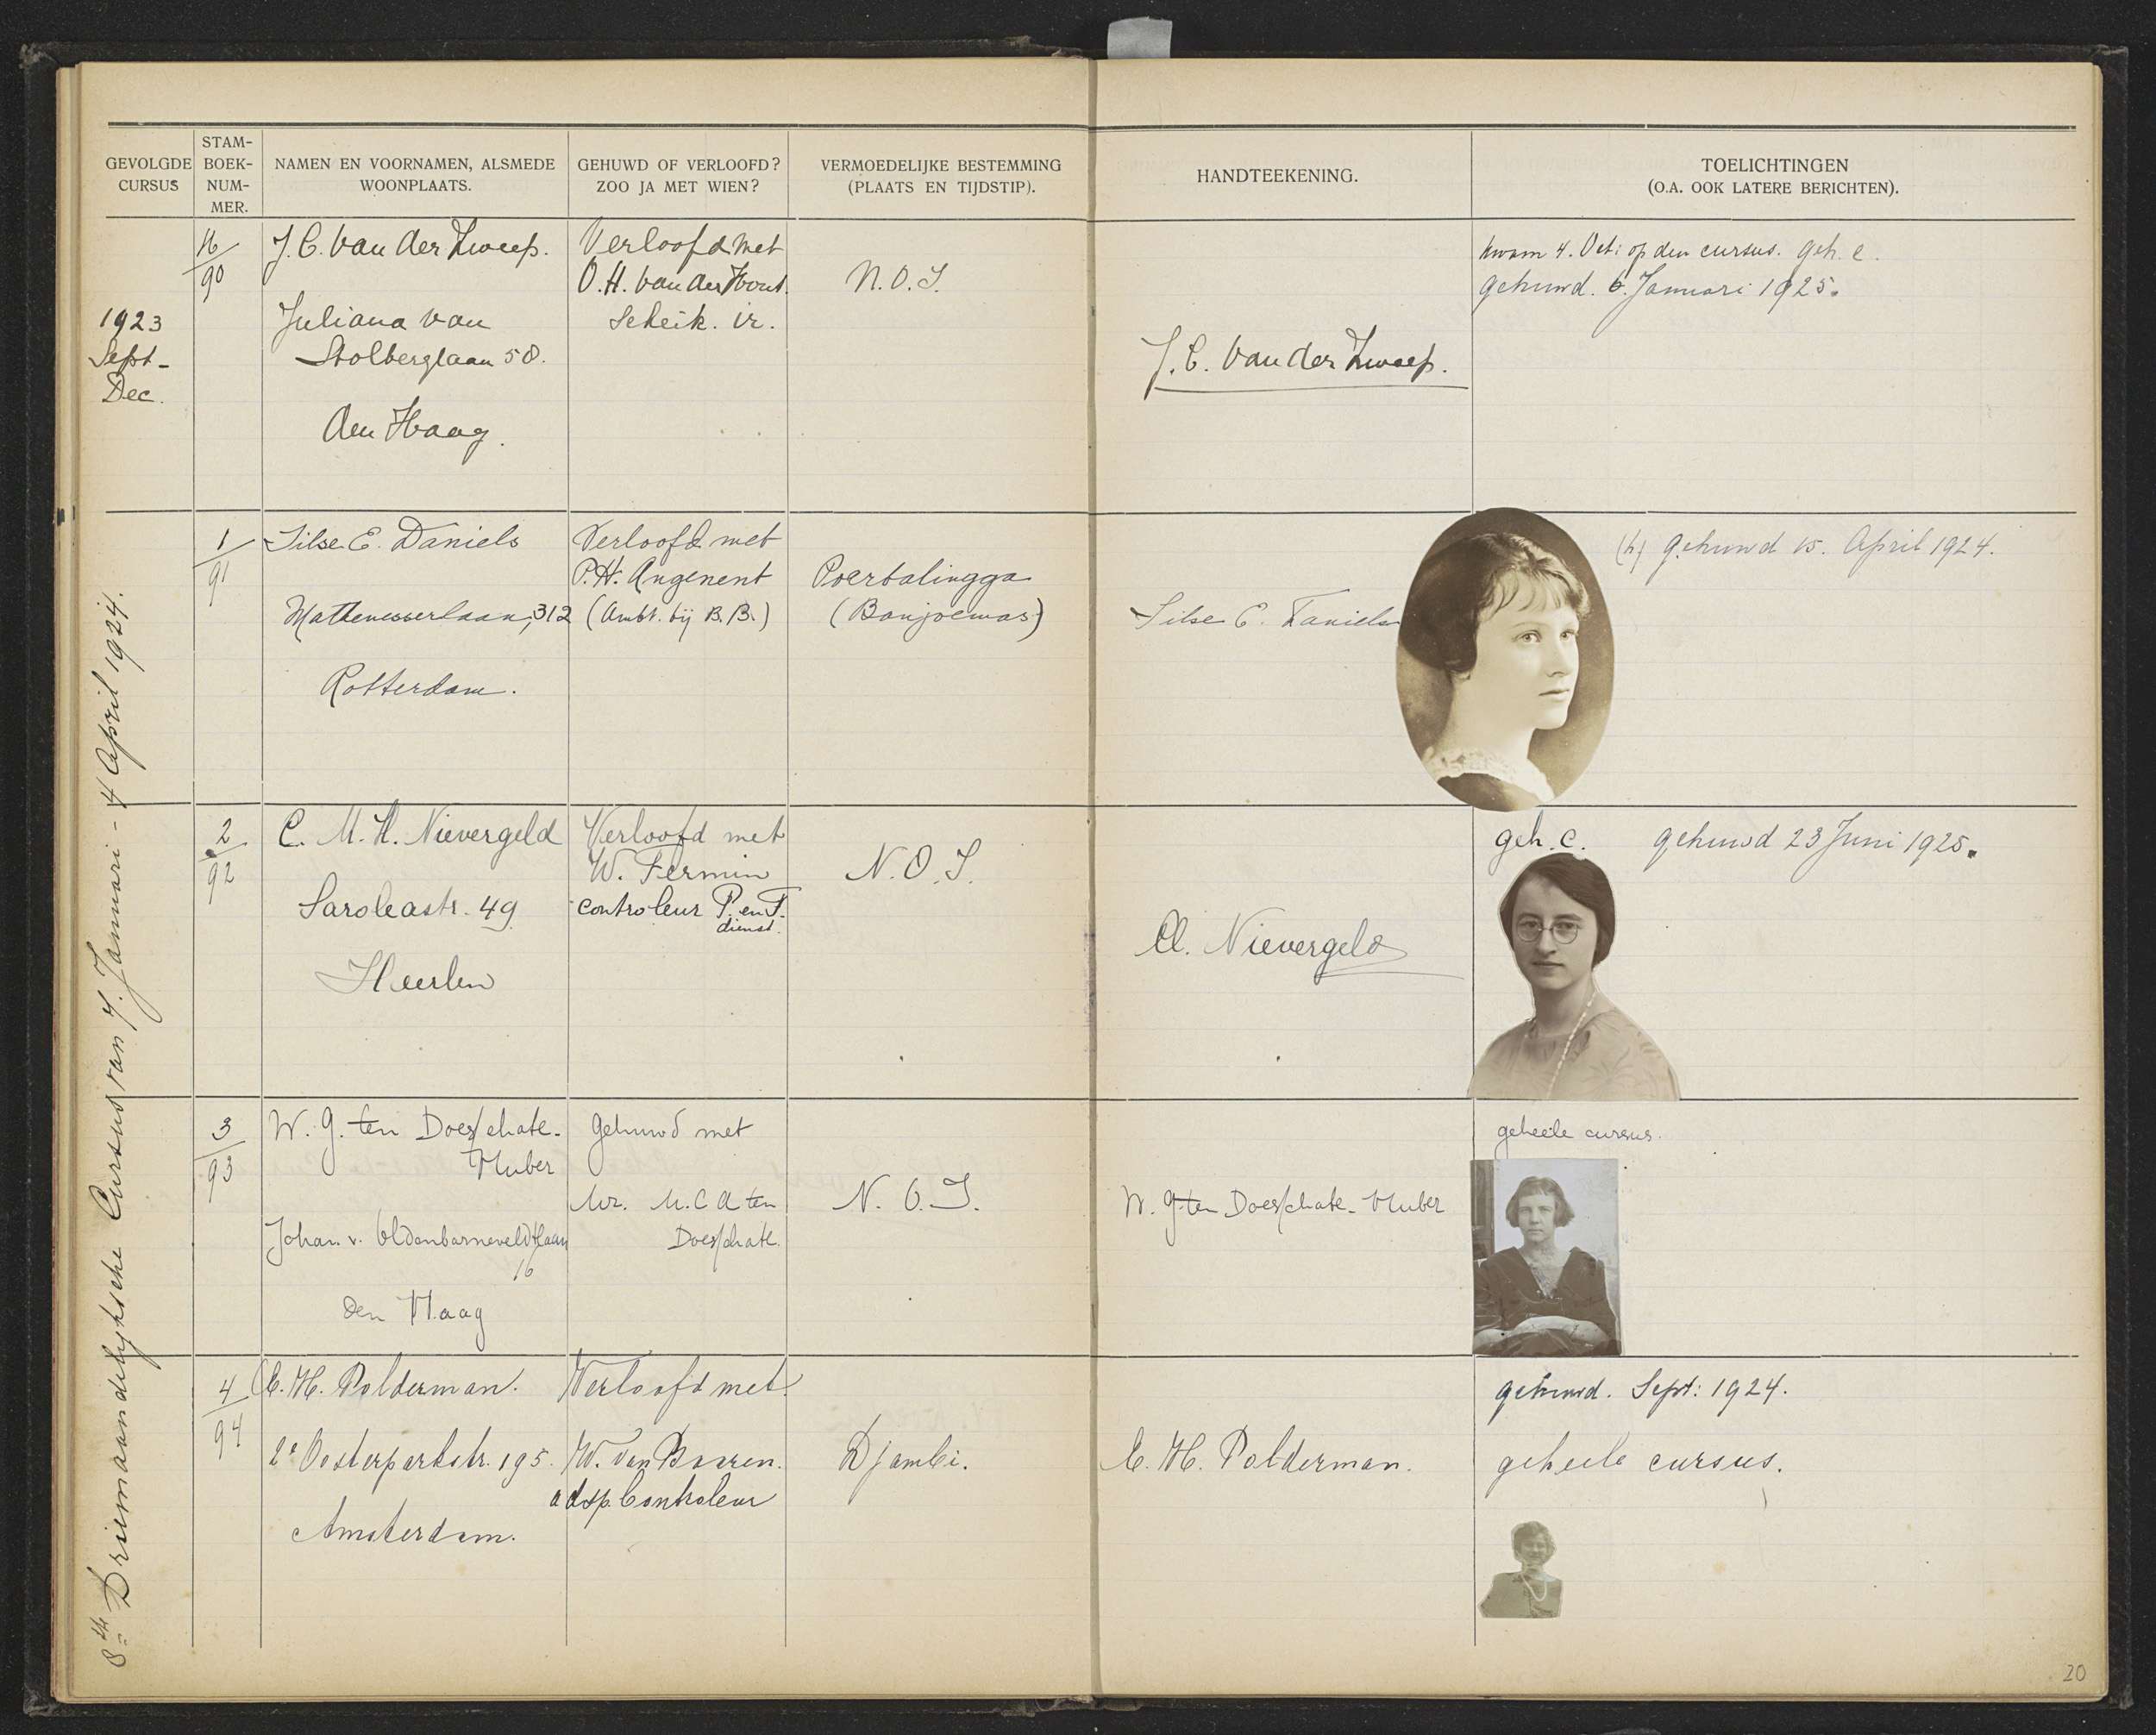 GEVOLGDE
CURSUS
STAM-
BOEK-
NUM-
MER.
NAMEN EN VOORNAMEN, ALSMEDE
WOONPLAATS.
GEHUWD OF VERLOOFD?
ZOO JA MET WIEN?
VERMOEDELIJKE BESTEMMING
(PLAATS EN TIJDSTIP).
HANDTEEKENING.
TOELICHTINGEN
(O.A. OOK LATERE BERICHTEN).
1923
Sept-
Dec.
16/90
J.C. van der Zweep.
Juliana van
Stolberglaan 58.
den Haag.
Verloofd met
O.H. van der Hout.
Scheik. ir.
N.O.I.
J.C. van der Zweep.
kwam 4. Oct: op den cursus. geh. c.
gehuwd. 6. Januari 1925.
8ste Driemaandelijksche Cursus van 7. Januari - 4 April 1924.
1/91
Silse E. Daniels
Mathenesserlaan, 312
Rotterdam.
Verloofd met
P.H. Angenent
(Ambt. bij B.B.)
Poerbalingga
(Banjoemas)
Silse E. Daniels
(h) gehuwd 15. April 1924.
2/92
C. M. H. Nievergeld
Saroleastr. 49
Heerlen
Verloofd met
W. Fermin
controleur P. en T.
dienst.
N.O.I.
Cl. Nievergeld
geh. c. gehuwd 23 Juni 1925.
3/93
W. G. ten Doesschate-
Huber
Johan v. Oldenbarneveldtlaan
16
den Haag
Gehuwd met
Mr. M.C.A ten
Doesschate.
N.O.I.
W. G. ten Doesschate-Huber
geheele cursus.
4/94
C. H. Polderman.
2e Oosterparkstr. 195.
Amsterdam.
Verloofd met
W. van Baaren.
adsp. Controleur
Djambi.
C. H. Polderman.
gehuwd. Sept: 1924.
geheele cursus.
20